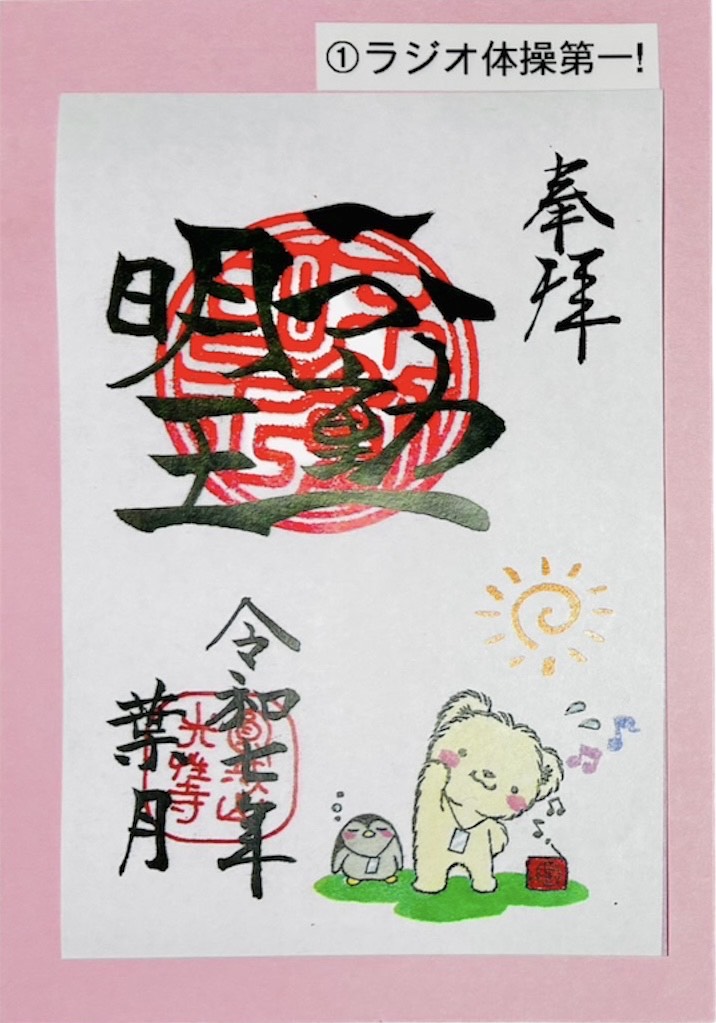 ①ラジオ体操第一!
奉拝
不動
明王
令和七年
葉月
光雅寺